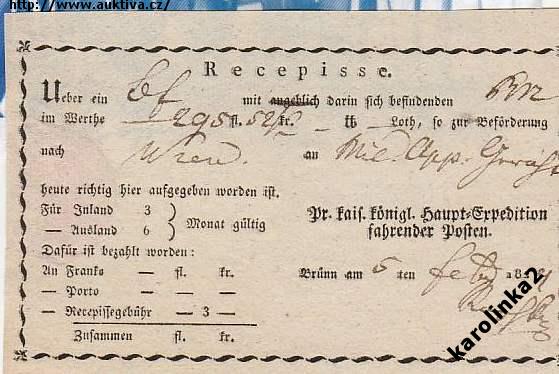 http://www.auktiva.cz/
Recepisse.
Ueber ein Bf mit angeblich darin sich befindenden
im Werthe 295 fl. 52 kr. — tt — Loth, so zur Beförderung
nach Wien. an Mil: App: Gericht
heute richtig hier aufgegeben worden ist.
Für Inland 3
— Ausland 6 } Monat gültig
Pr. kais. königl. Haupt-Expedition
fahrender Posten.
Dafür ist bezahlt worden:
An Franko — fl. kr.
Brünn am 5 ten 18
— Porto — — —
— Recepissegebühr — 3 —
Zusammen fl. kr.
karolinka2